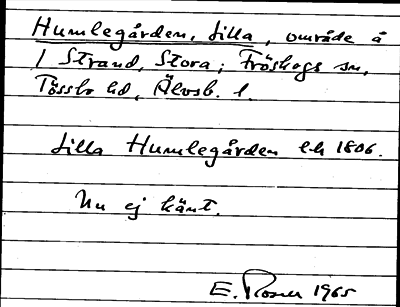 Humlegården, Lilla, område å
1 Strand, Stora; Fröskogs sn,
Tössbo hd, Älvsb. l.
Lilla Humlegården lh 1806.
Nu ej känt.
E. Rosén 1965